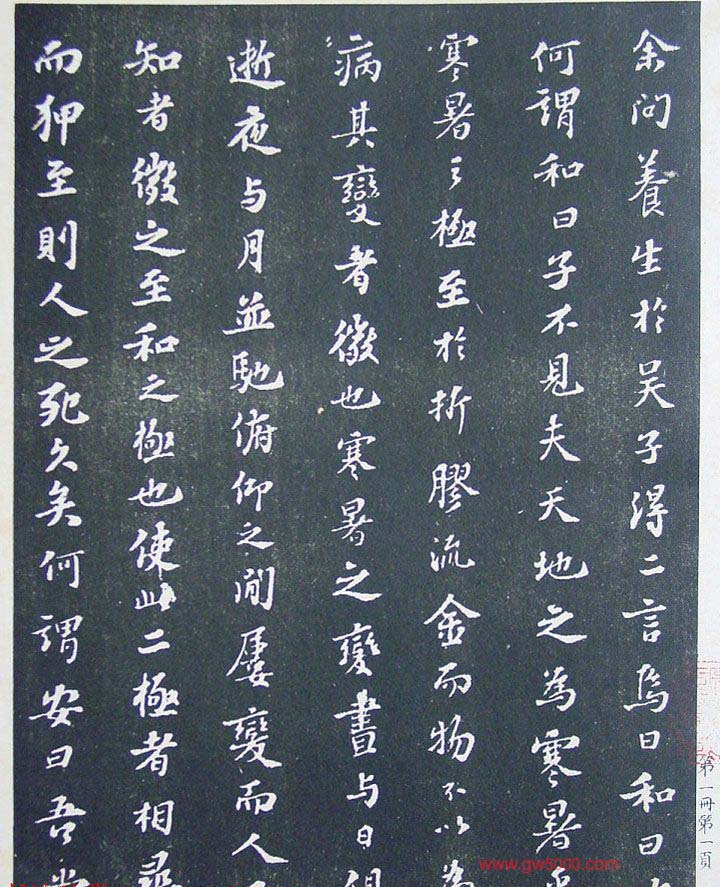 余问養生於吴子得二言焉曰和曰
何謂和曰子不見夫天地之為寒暑乎
寒暑之極至於折膠流金而物不以為
病其變者微也寒暑之變晝與日俱
逝夜與月並馳俯仰之間屢變而人
知者微之至和之極也使此二極者相尋
而狎至則人之死久矣何謂安曰吾
第一冊第一頁
www.gw5000.com